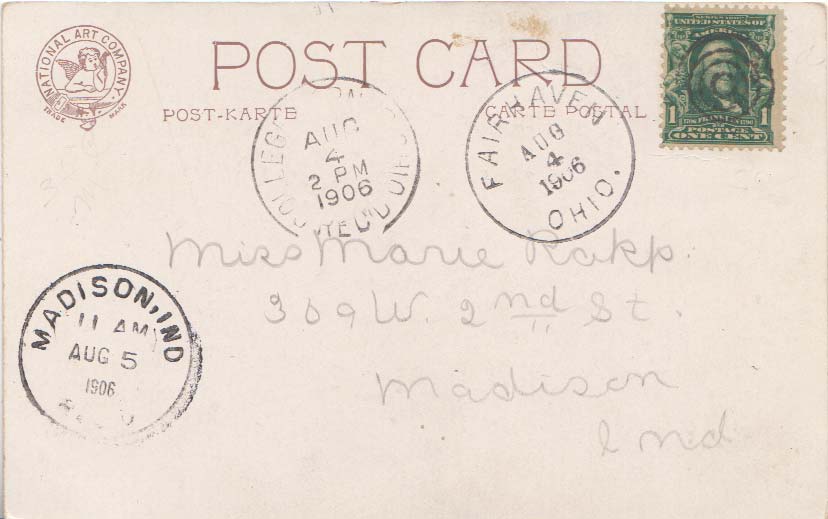 NATIONAL ART COMPANY
N.Y.
TRADE MARK
POST CARD
POST-KARTE
CARTE POSTAL
SERIES 1902
UNITED STATES OF AMERICA
1 FRANKLIN 1
POSTAGE
ONE CENT
COLLEGE OHIO
AUG
4
2 PM
1906
REC'D
FAIRHAVEN
AUG
4
1906
OHIO.
Miss Marie Rakp.
309 W. 2nd St.
Madison
Ind
MADISON, IND
11 AM
AUG 5
1906
REC'D